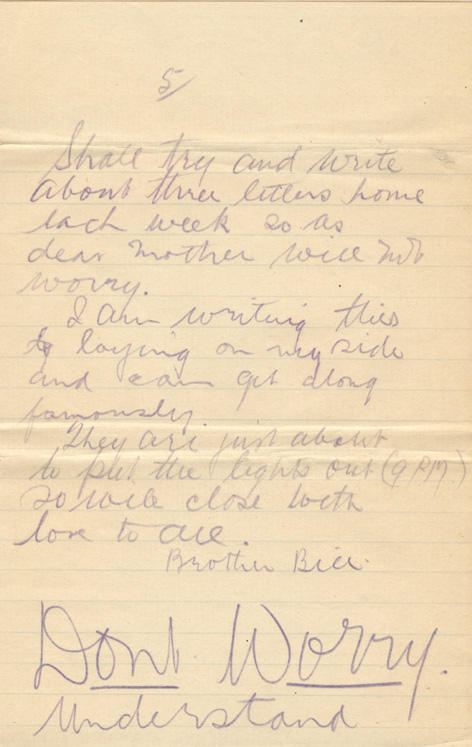 5/
Shall try and write
about three letters home
each week so as
dear Mother will not
worry.
I am writing this
by laying on my side
and can get along
famously.
They are just about
to put the lights out (9 P.M.)
so will close with
love to all.
Brother Bill.
Dont Worry.
Understand